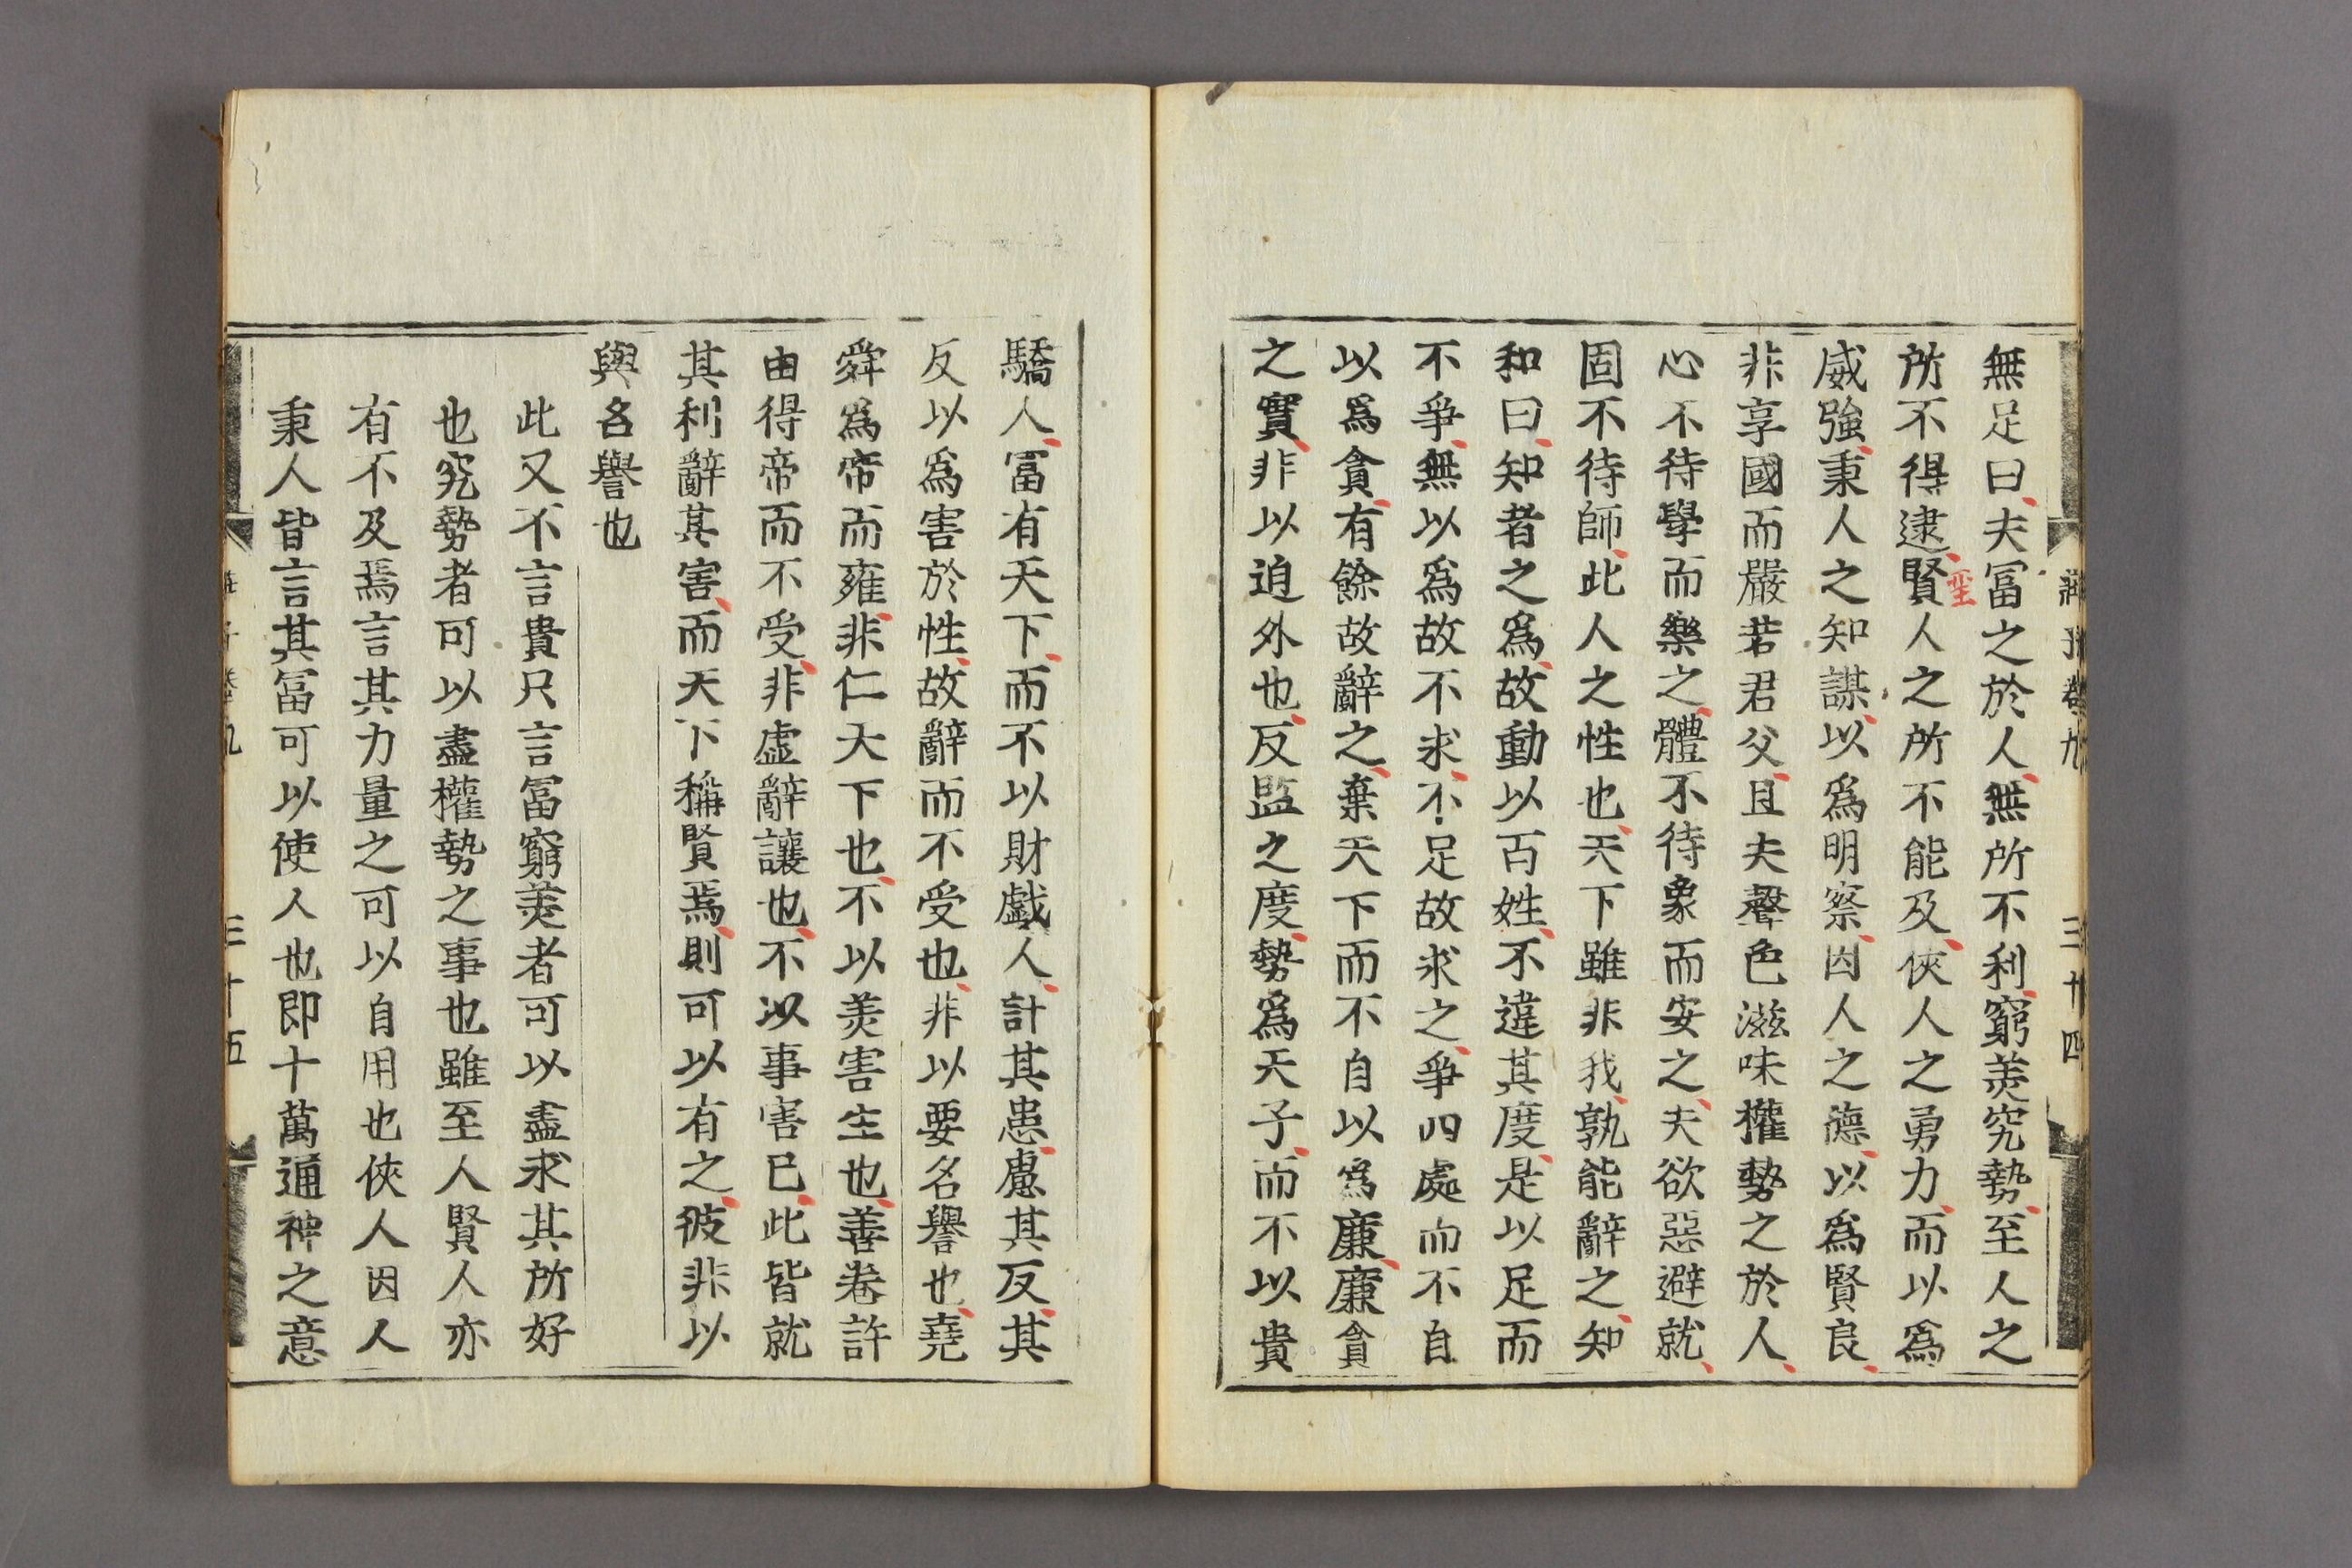 莊子卷九 三十四
無足曰夫冨之於人無所不利窮美究勢至人之
所不得逮賢人之所不能及俠人之勇力而以爲
威強秉人之知謀以爲明察因人之德以爲賢良
非享國而嚴若君父且夫聲色滋味權勢之於人
心不待學而樂之體不待象而安之夫欲惡避就
固不待師此人之性也天下雖非我孰能辭之知
和曰知者之爲故動以百姓不違其度是以足而
不爭無以爲故不求不足故求之爭四處而不自
以爲貪有餘故辭之棄天下而不自以爲廉廉貪
之實非以迫外也反監之度勢爲天子而不以貴
驕人冨有天下而不以財戲人計其患慮其反其
反以爲害於性故辭而不受也非以要名譽也堯
舜爲帝而雍非仁天下也不以美害生也善卷許
由得帝而不受非虛辭讓也不以事害已此皆就
其利辭其害而天下稱賢焉則可以有之彼非以
與名譽也
此又不言貴只言冨窮美者可以盡求其所好
也究勢者可以盡權勢之事也雖至人賢人亦
有不及焉言其力量之可以自用也俠人因人
秉人皆言其冨可以使人也即十萬通神之意
子 九 三十五